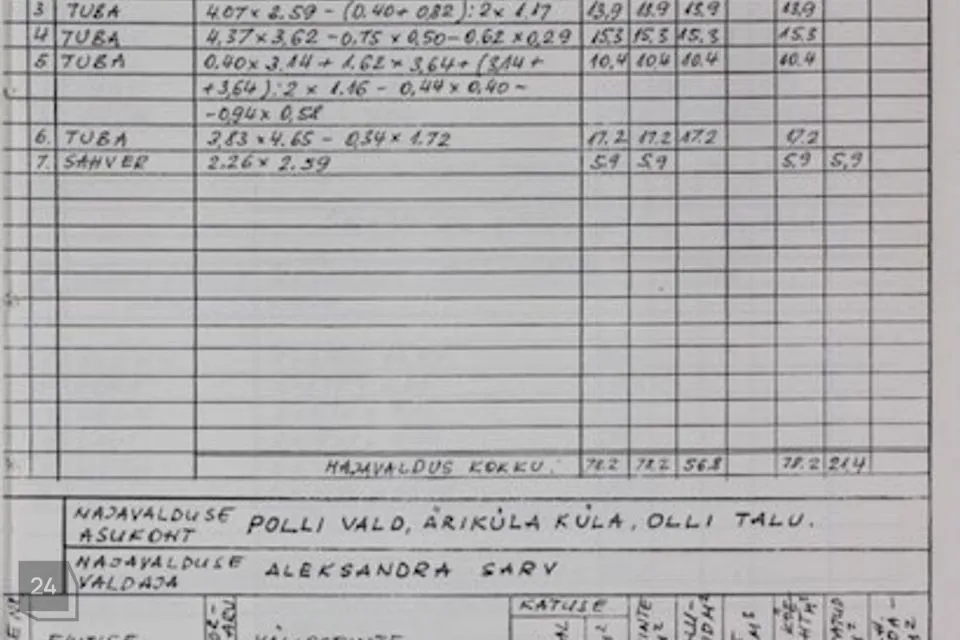 3 TUBA 4.07 × 3.59 – (0.40 + 0,82) : 2 × 1.17 13,9 13.9 13,9 13,9
4 TUBA 4,37 × 3,62 – 0,75 × 0,50 – 0,62 × 0,29 15.3 15.3 15.3 15.3
5 TUBA 0,40 × 3.14 + 1.62 × 3,64 + (3,14 + 10,4 10.4 10.4 10.4
+ 3,64) : 2 × 1.16 – 0,44 × 0,40 –
– 0,94 × 0,58
6. TUBA 3,83 × 4.65 – 0,34 × 1.72 17.2 17.2 17.2 17.2
7. SAHVER 2.26 × 2.59 5.9 5,9 5.9 5,9
MAJAVALDUS KOKKU: 78.2 78.2 56.8 78.2 21.4
MAJAVALDUSE ASUKOHT POLLI VALD, ÄRIKÜLA KÜLA, OLLI TALU.
MAJAVALDUSE VALDAJA ALEKSANDRA SARV
24
KATUSE